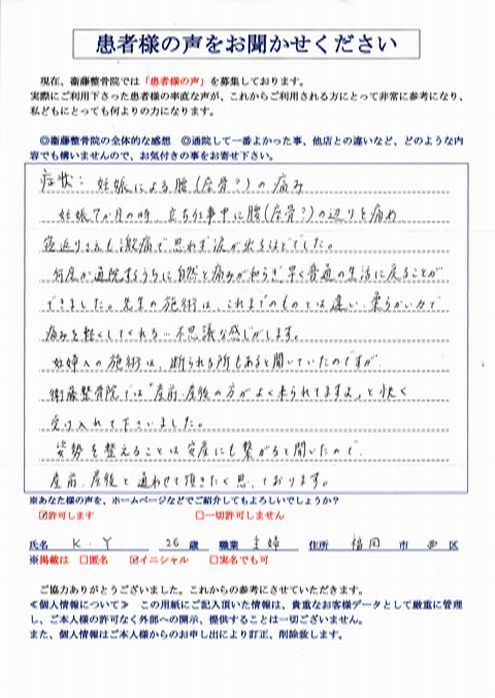 患者様の声をお聞かせください
現在、衛藤整骨院では「患者様の声」を募集しております。
実際にご利用下さった患者様の率直な声が、これからご利用される方にとって非常に参考になり、
私どもにとっても何よりの力になります。
◎衛藤整骨院の全体的な感想　◎通院して一番よかった事、他店との違いなど、どのような内
容でも構いませんので、お気付きの事をお寄せ下さい。
症状：妊娠による腰(座骨？)の痛み
妊娠7か月の時、立ち仕事中に腰(座骨？)の辺りを痛め
寝返りさえも激痛で思わず涙が出るほどでした。
何度か通院するうちに自然と痛みが和らぎ早く普通の生活に戻ることが
できました。先生の施術は、これまでのものとは違い、柔らかい力で
痛みを軽くしてくれる…不思議な感じがします。
妊婦への施術は、断られる所もあると聞いていたのですが
衛藤整骨院では"産前.産後の方がよく来られてますよ"と快く
受け入れて下さいました。
姿勢を整えることは安産にも繋がると聞いたので
産前.産後と通わせて頂きたく思っております。
※あなた様の声を、ホームページなどでご紹介してもよろしいでしょうか？
☑許可します　□一切許可しません
氏名 K・Y 26 歳 職業 主婦 住所 福岡 市 西 区
※掲載は □匿名 ☑イニシャル □実名でも可
ご協力ありがとうございました。これからの参考にさせていただきます。
≪個人情報について≫ この用紙にご記入頂いた情報は、貴重なお客様データとして厳重に管理
し、ご本人様の許可なく外部への開示、提供することは一切ございません。
また、個人情報はご本人様からのお申し出により訂正、削除致します。